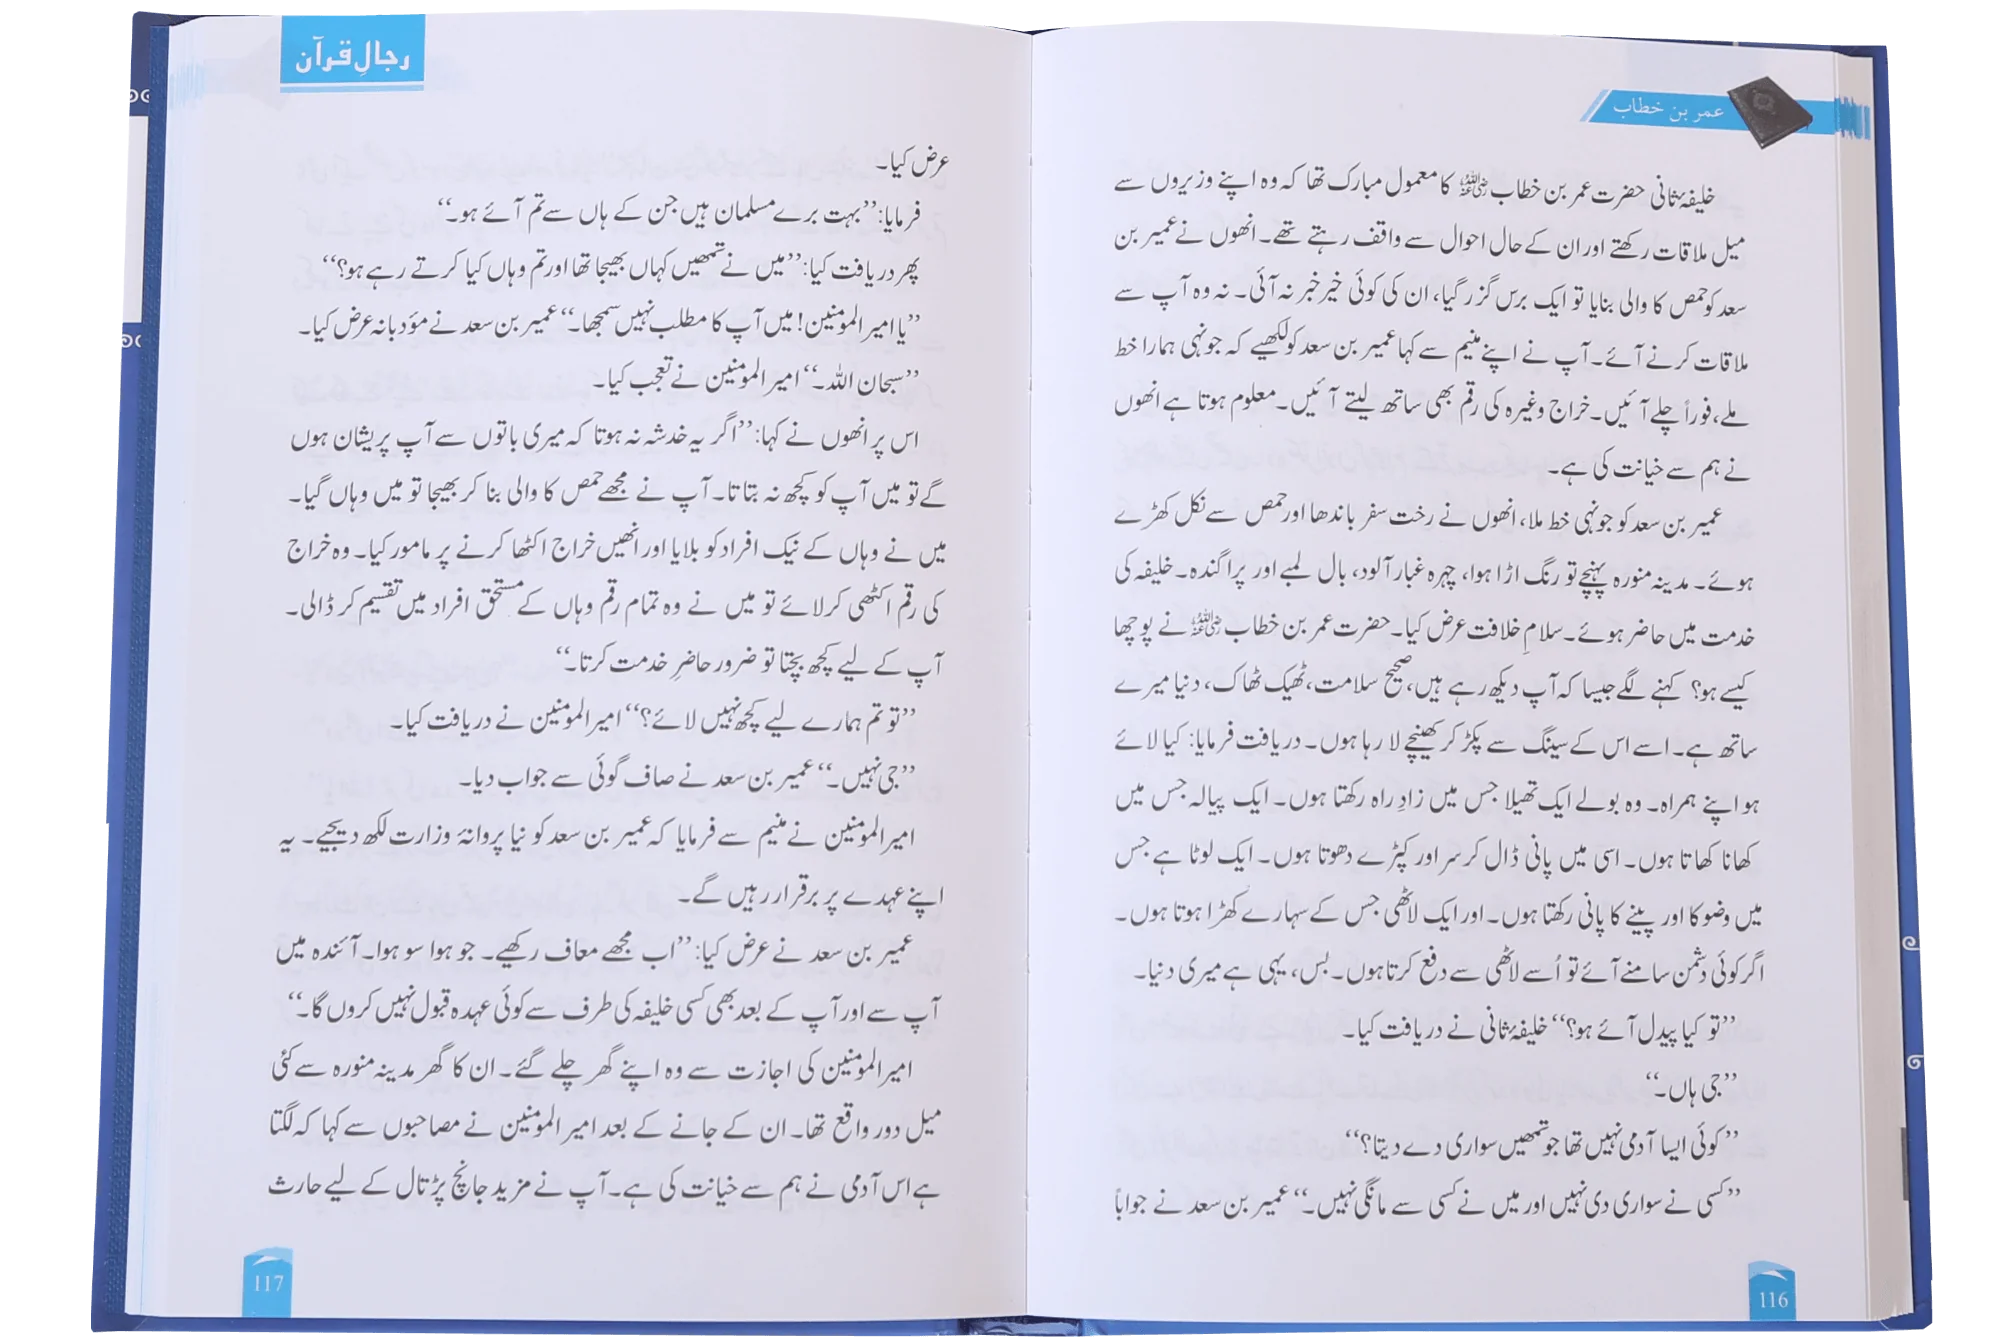 عمر بن خطاب
خلیفۂ ثانی حضرت عمر بن خطاب رضی اللہ عنہ کا معمول مبارک تھا کہ وہ اپنے وزیروں سے
میل ملاقات رکھتے اور ان کے حال احوال سے واقف رہتے تھے۔ انھوں نے عمیر بن
سعد کو حمص کا والی بنایا تو ایک برس گزر گیا، ان کی کوئی خیر خبر نہ آئی۔ نہ وہ آپ سے
ملاقات کرنے آئے۔ آپ نے اپنے منیم سے کہا عمیر بن سعد کو لکھیے کہ جونہی ہمارا خط
ملے، فوراً چلے آئیں۔ خراج وغیرہ کی رقم بھی ساتھ لیتے آئیں۔ معلوم ہوتا ہے انھوں
نے ہم سے خیانت کی ہے۔
عمیر بن سعد کو جونہی خط ملا، انھوں نے رخت سفر باندھا اور حمص سے نکل کھڑے
ہوئے۔ مدینہ منورہ پہنچے تو رنگ اڑا ہوا، چہرہ غبار آلود، بال لمبے اور پراگندہ۔ خلیفہ کی
خدمت میں حاضر ہوئے۔ سلامِ خلافت عرض کیا۔ حضرت عمر بن خطاب رضی اللہ عنہ نے پوچھا
کیسے ہو؟ کہنے لگے جیسا کہ آپ دیکھ رہے ہیں، صحیح سلامت، ٹھیک ٹھاک، دنیا میرے
ساتھ ہے۔ اسے اس کے سینگ سے پکڑ کر کھینچے لا رہا ہوں۔ دریافت فرمایا: کیا لائے
ہو اپنے ہمراہ۔ وہ بولے ایک تھیلا جس میں زادِ راہ رکھتا ہوں۔ ایک پیالہ جس میں
کھانا کھاتا ہوں۔ اسی میں پانی ڈال کر سر اور کپڑے دھوتا ہوں۔ ایک لوٹا ہے جس
میں وضو کا اور پینے کا پانی رکھتا ہوں۔ اور ایک لاٹھی جس کے سہارے کھڑا ہوتا ہوں۔
اگر کوئی دشمن سامنے آئے تو اُسے لاٹھی سے دفع کرتا ہوں۔ بس، یہی ہے میری دنیا۔
’’تو کیا پیدل آئے ہو؟‘‘ خلیفۂ ثانی نے دریافت کیا۔
’’جی ہاں۔‘‘
’’کوئی ایسا آدمی نہیں تھا جو تمھیں سواری دے دیتا؟‘‘
’’کسی نے سواری دی نہیں اور میں نے کسی سے مانگی نہیں۔‘‘ عمیر بن سعد نے جواباً
116
رجالِ قرآن
عرض کیا۔
فرمایا: ’’بہت برے مسلمان ہیں جن کے ہاں سے تم آئے ہو۔‘‘
پھر دریافت کیا: ’’میں نے تمھیں کہاں بھیجا تھا اور تم وہاں کیا کرتے رہے ہو؟‘‘
’’یا امیر المومنین! میں آپ کا مطلب نہیں سمجھا۔‘‘ عمیر بن سعد نے مؤدبانہ عرض کیا۔
’’سبحان اللہ۔‘‘ امیر المومنین نے تعجب کیا۔
اس پر انھوں نے کہا: ’’اگر یہ خدشہ نہ ہوتا کہ میری باتوں سے آپ پریشان ہوں
گے تو میں آپ کو کچھ نہ بتاتا۔ آپ نے مجھے حمص کا والی بنا کر بھیجا تو میں وہاں گیا۔
میں نے وہاں کے نیک افراد کو بلایا اور انھیں خراج اکٹھا کرنے پر مامور کیا۔ وہ خراج
کی رقم اکٹھی کر لائے تو میں نے وہ تمام رقم وہاں کے مستحق افراد میں تقسیم کر ڈالی۔
آپ کے لیے کچھ بچتا تو ضرور حاضرِ خدمت کرتا۔‘‘
’’تو تم ہمارے لیے کچھ نہیں لائے؟‘‘ امیر المومنین نے دریافت کیا۔
’’جی نہیں۔‘‘ عمیر بن سعد نے صاف گوئی سے جواب دیا۔
امیر المومنین نے منیم سے فرمایا کہ عمیر بن سعد کو نیا پروانۂ وزارت لکھ دیجیے۔ یہ
اپنے عہدے پر برقرار رہیں گے۔
عمیر بن سعد نے عرض کیا: ’’اب مجھے معاف رکھیے۔ جو ہوا سو ہوا۔ آئندہ میں
آپ سے اور آپ کے بعد بھی کسی خلیفہ کی طرف سے کوئی عہدہ قبول نہیں کروں گا۔‘‘
امیر المومنین کی اجازت سے وہ اپنے گھر چلے گئے۔ ان کا گھر مدینہ منورہ سے کئی
میل دور واقع تھا۔ ان کے جانے کے بعد امیر المومنین نے مصاحبوں سے کہا کہ لگتا
ہے اس آدمی نے ہم سے خیانت کی ہے۔ آپ نے مزید جانچ پڑتال کے لیے حارث
117